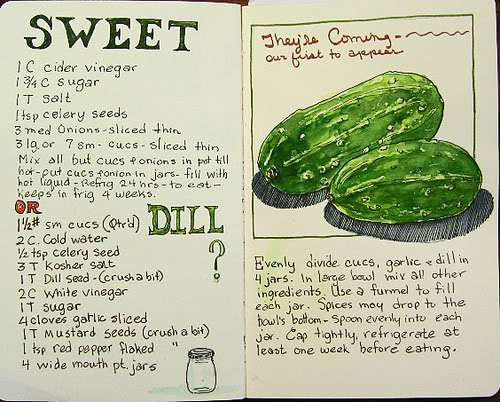 SWEET
1 C cider vinegar
1 3/4 C sugar
1 T salt
1 tsp celery seeds
3 med Onions-sliced thin
3 lg. or 7 sm- cucs-sliced thin
Mix all but cucs & onions in pot till
hot-put cucs & onion in jars-fill with
hot liquid-Refrig 24 hrs-to eat-
keeps in frig 4 weeks.
OR
DILL
?
1 1/2# sm cucs (Qtr'd)
2 C. Cold water
1/2 tsp celery seed
3 T Kosher salt
1 T Dill seed-(crush a bit)
2 C White vinegar
1 T sugar
4 cloves garlic sliced
1 T Mustard seeds (crush a bit)
1 tsp red pepper flaked "
4 wide mouth pt. jars
They're Coming-
our first to appear
Evenly divide cucs, garlic & dill in
4 jars. In large bowl mix all other
ingredients. Use a funnel to fill
each jar. Spices may drop to the
bowl's bottom-Spoon evenly into each
jar. Cap tightly, refrigerate at
least one week before eating.